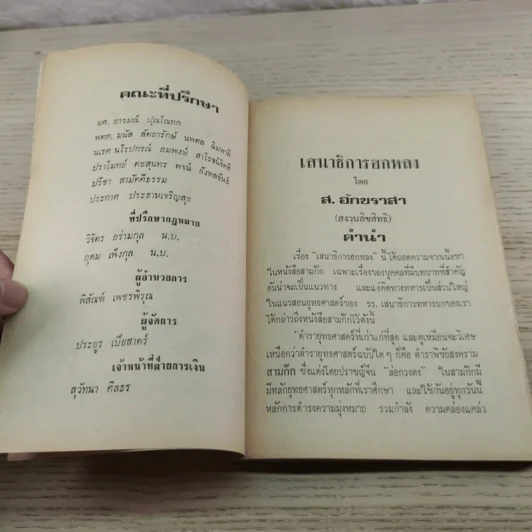 คณะที่ปรึกษา
ผศ. อารมณ์ ปุณโณทก
พตท. มนัส สัตยารักษ์ นพดล
นเรศ นโรปกรณ์ ถมพงษ์ สาโรจน์
ปราโมทย์ คชสุนทร พจน์
ปรีชา สามัคคีธรรม
ประกาศ ประธานเจริญสุข
ที่ปรึกษากฎหมาย
วิจิตร อร่ามกุล น.บ.
อุดม เพ็งกุล น.บ.
ผู้อำนวยการ
พิสัณฑ์ เพชรพิรุณ
ผู้จัดการ
ประยูร เบี้ยสาคร์
เจ้าหน้าที่ฝ่ายการเงิน
สุวัทนา ศีลธร
เสนาธิการฮกหลง
โดย
ส. อักษราสา
(สงวนลิขสิทธิ)
คำนำ
เรื่อง "เสนาธิการฮกหลง" นี้ ได้ถอดความจากเนื้อหา
ในหนังสือสามก๊ก เฉพาะเรื่องของบุคคลที่มีบทบาทที่สำคัญ
อันน่าจะเป็นแนวทาง และแง่คิดทางทหารเป็นส่วนใหญ่
ในแนวสอนยุทธศาสตร์ของ รร. เสนาธิการทหารบกของเรา
ได้กล่าวถึงหนังสือสามก๊กไว้ดังนี้
"ตำรายุทธศาสตร์ที่เก่าแก่ที่สุด และดูเหมือนจะวิเศษ
เหนือกว่าตำรายุทธศาสตร์ฉบับใด ๆ ก็คือ ตำราพิชัยสงคราม
สามก๊ก ซึ่งแต่งโดยปราชญ์จีน "ล้อกวงตง" ในสามก๊กมี
มีหลักยุทธศาสตร์ทุกหลักที่เราศึกษา และใช้กันอยู่ทุกวันนี้
หลักการดำรงความมุ่งหมาย รวมกำลัง ความคล่องแคล่ว